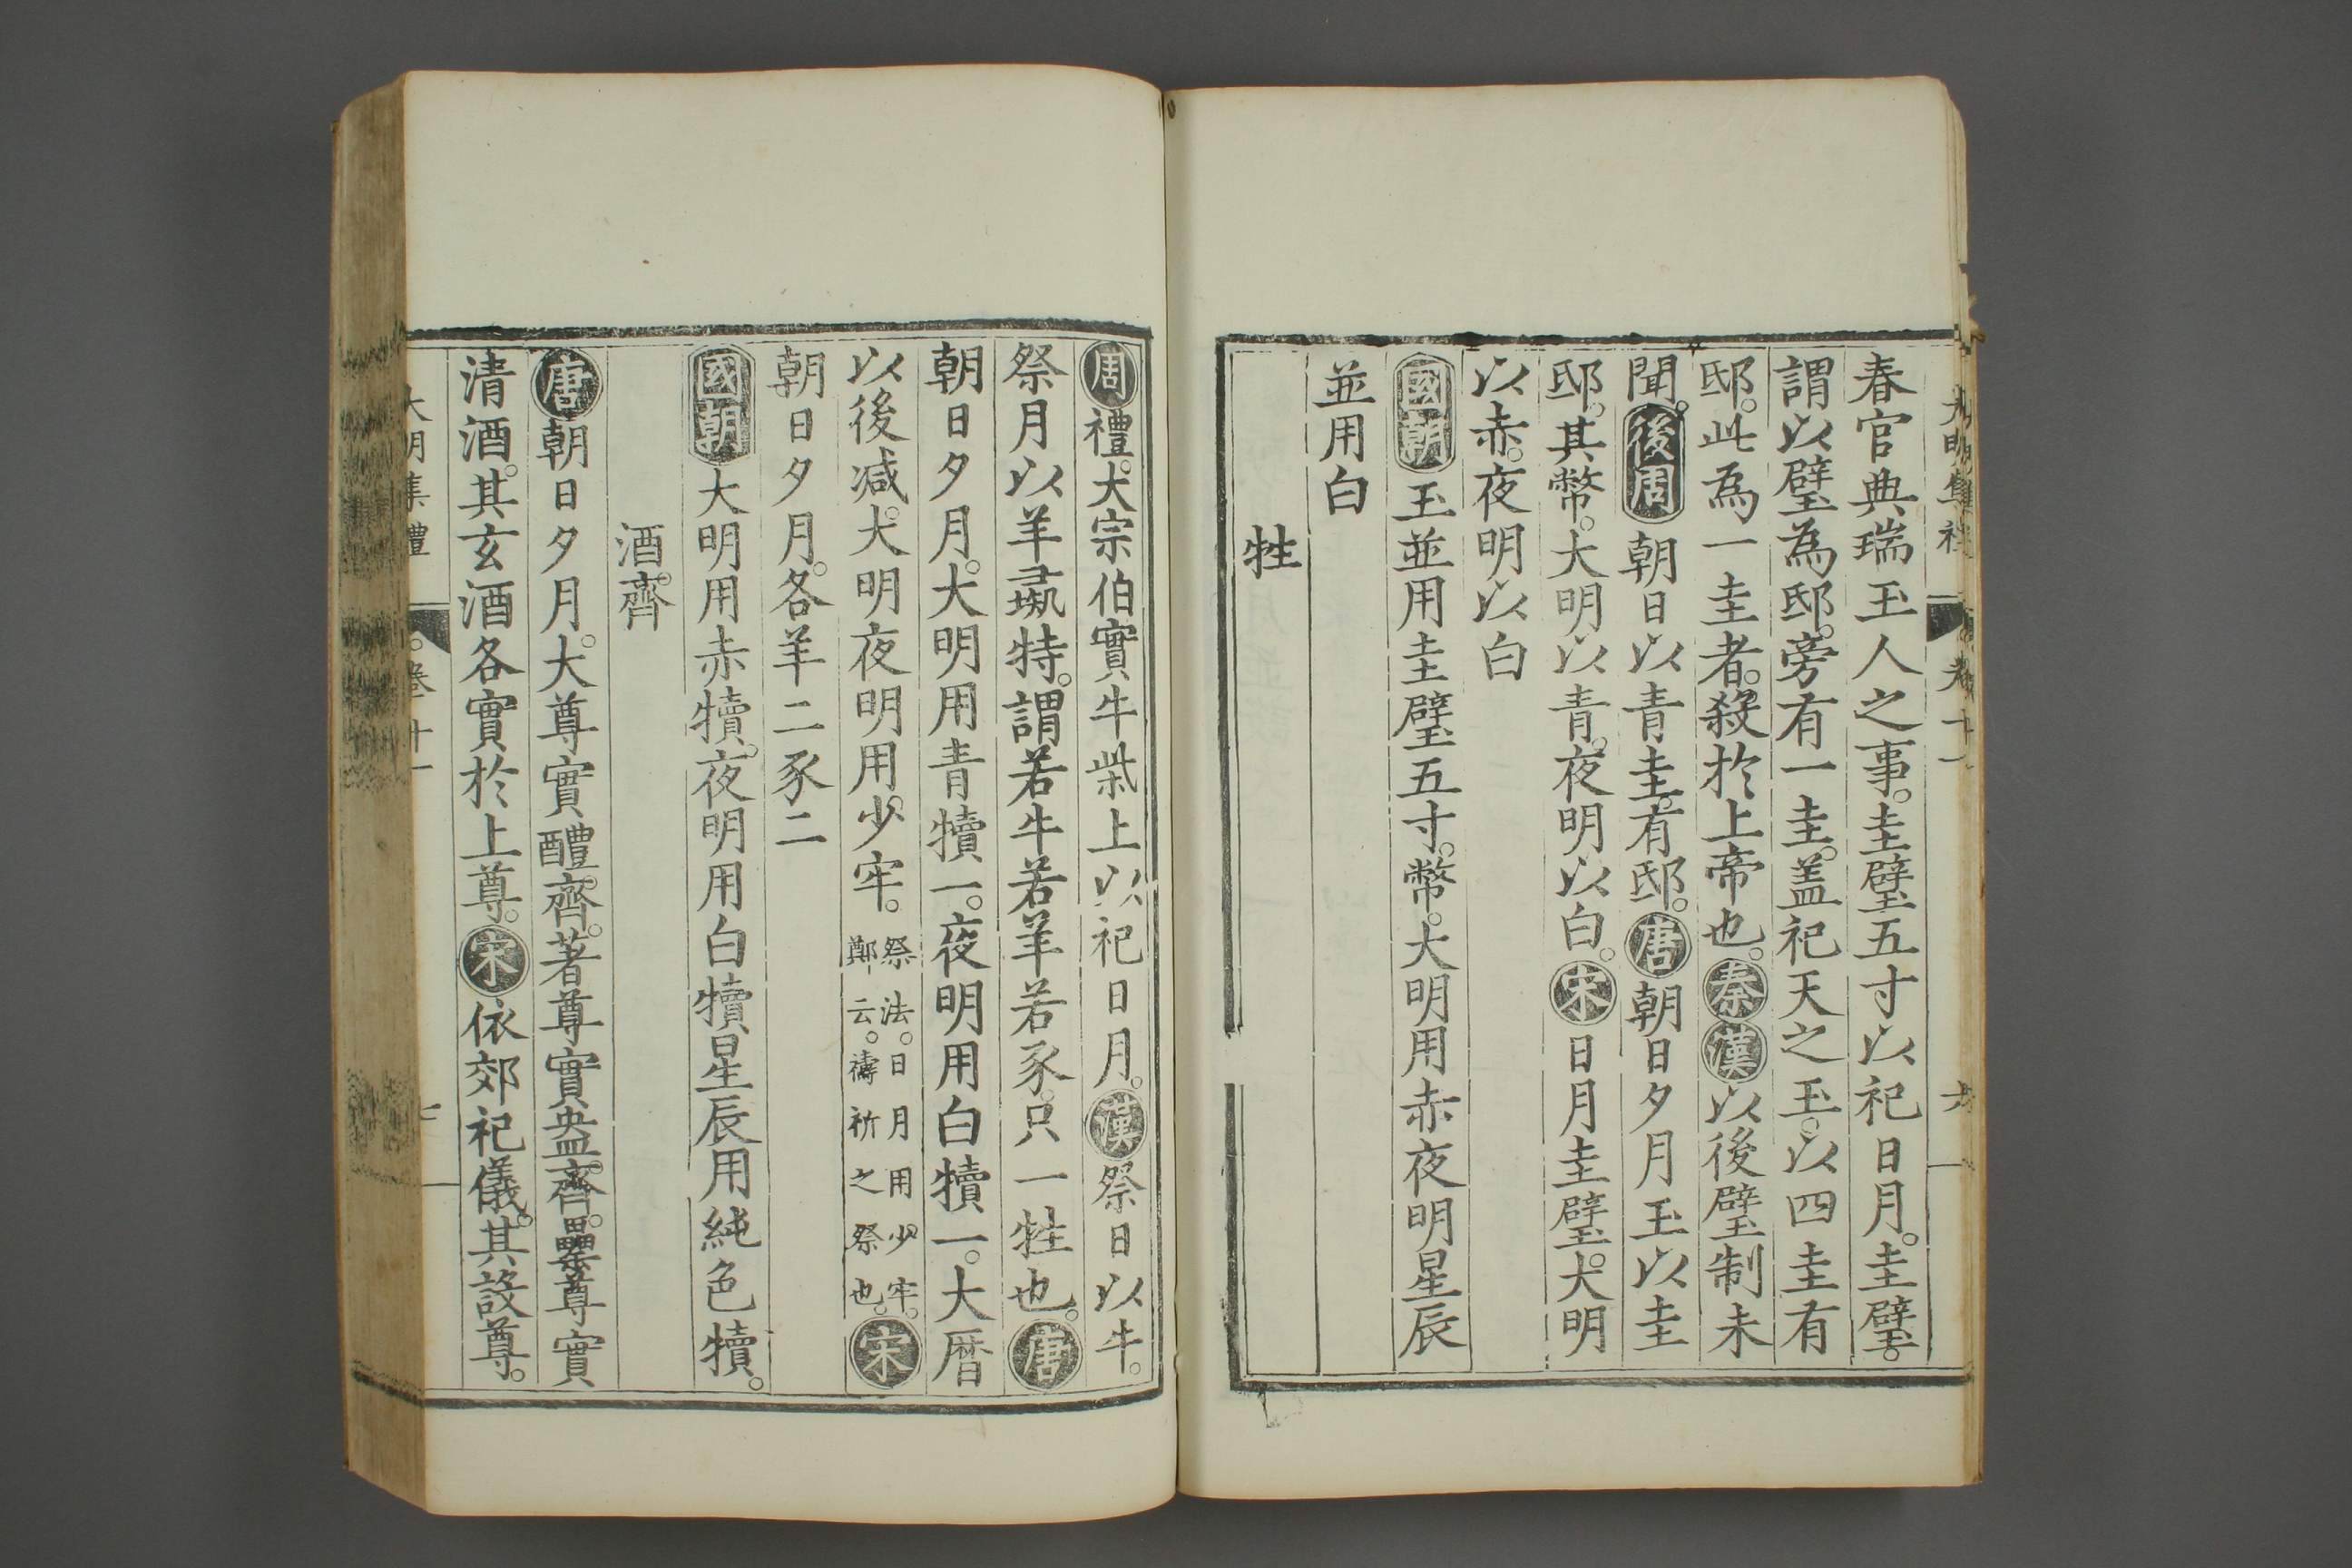 春官典瑞玉人之事。圭璧五寸以祀日月。圭璧。
謂以璧為邸。旁有一圭。盖祀天之玉。以四圭有
邸。此為一圭者。殺於上帝也。秦漢以後璧制未
聞。後周朝日以青圭。有邸。唐朝日夕月玉以圭
邸。其幣。大明以青。夜明以白。宋日月圭璧。大明
以赤。夜明以白
國朝玉並用圭璧五寸。幣。大明用赤夜明星辰
並用白
牲
周禮。大宗伯實牛柴上以祀日月。漢祭日以牛。
祭月以羊彘特。謂若牛若羊若豕。只一牲也。唐
朝日夕月。大明用青犢一。夜明用白犢一。大暦
以後减。大明夜明用。少牢。
祭法。日月用少牢。
鄭云。禱祈之祭也。宋
朝日夕月。各羊二豕二
國朝大明用赤犢。夜明用白犢星辰用純色犢。
酒。齊
唐朝日夕月。大尊實醴。齊。著尊實盎。齊。罍尊實
清酒。其玄酒各實於上尊。宋依郊祀儀。其設尊。
大明集禮 卷十一 七